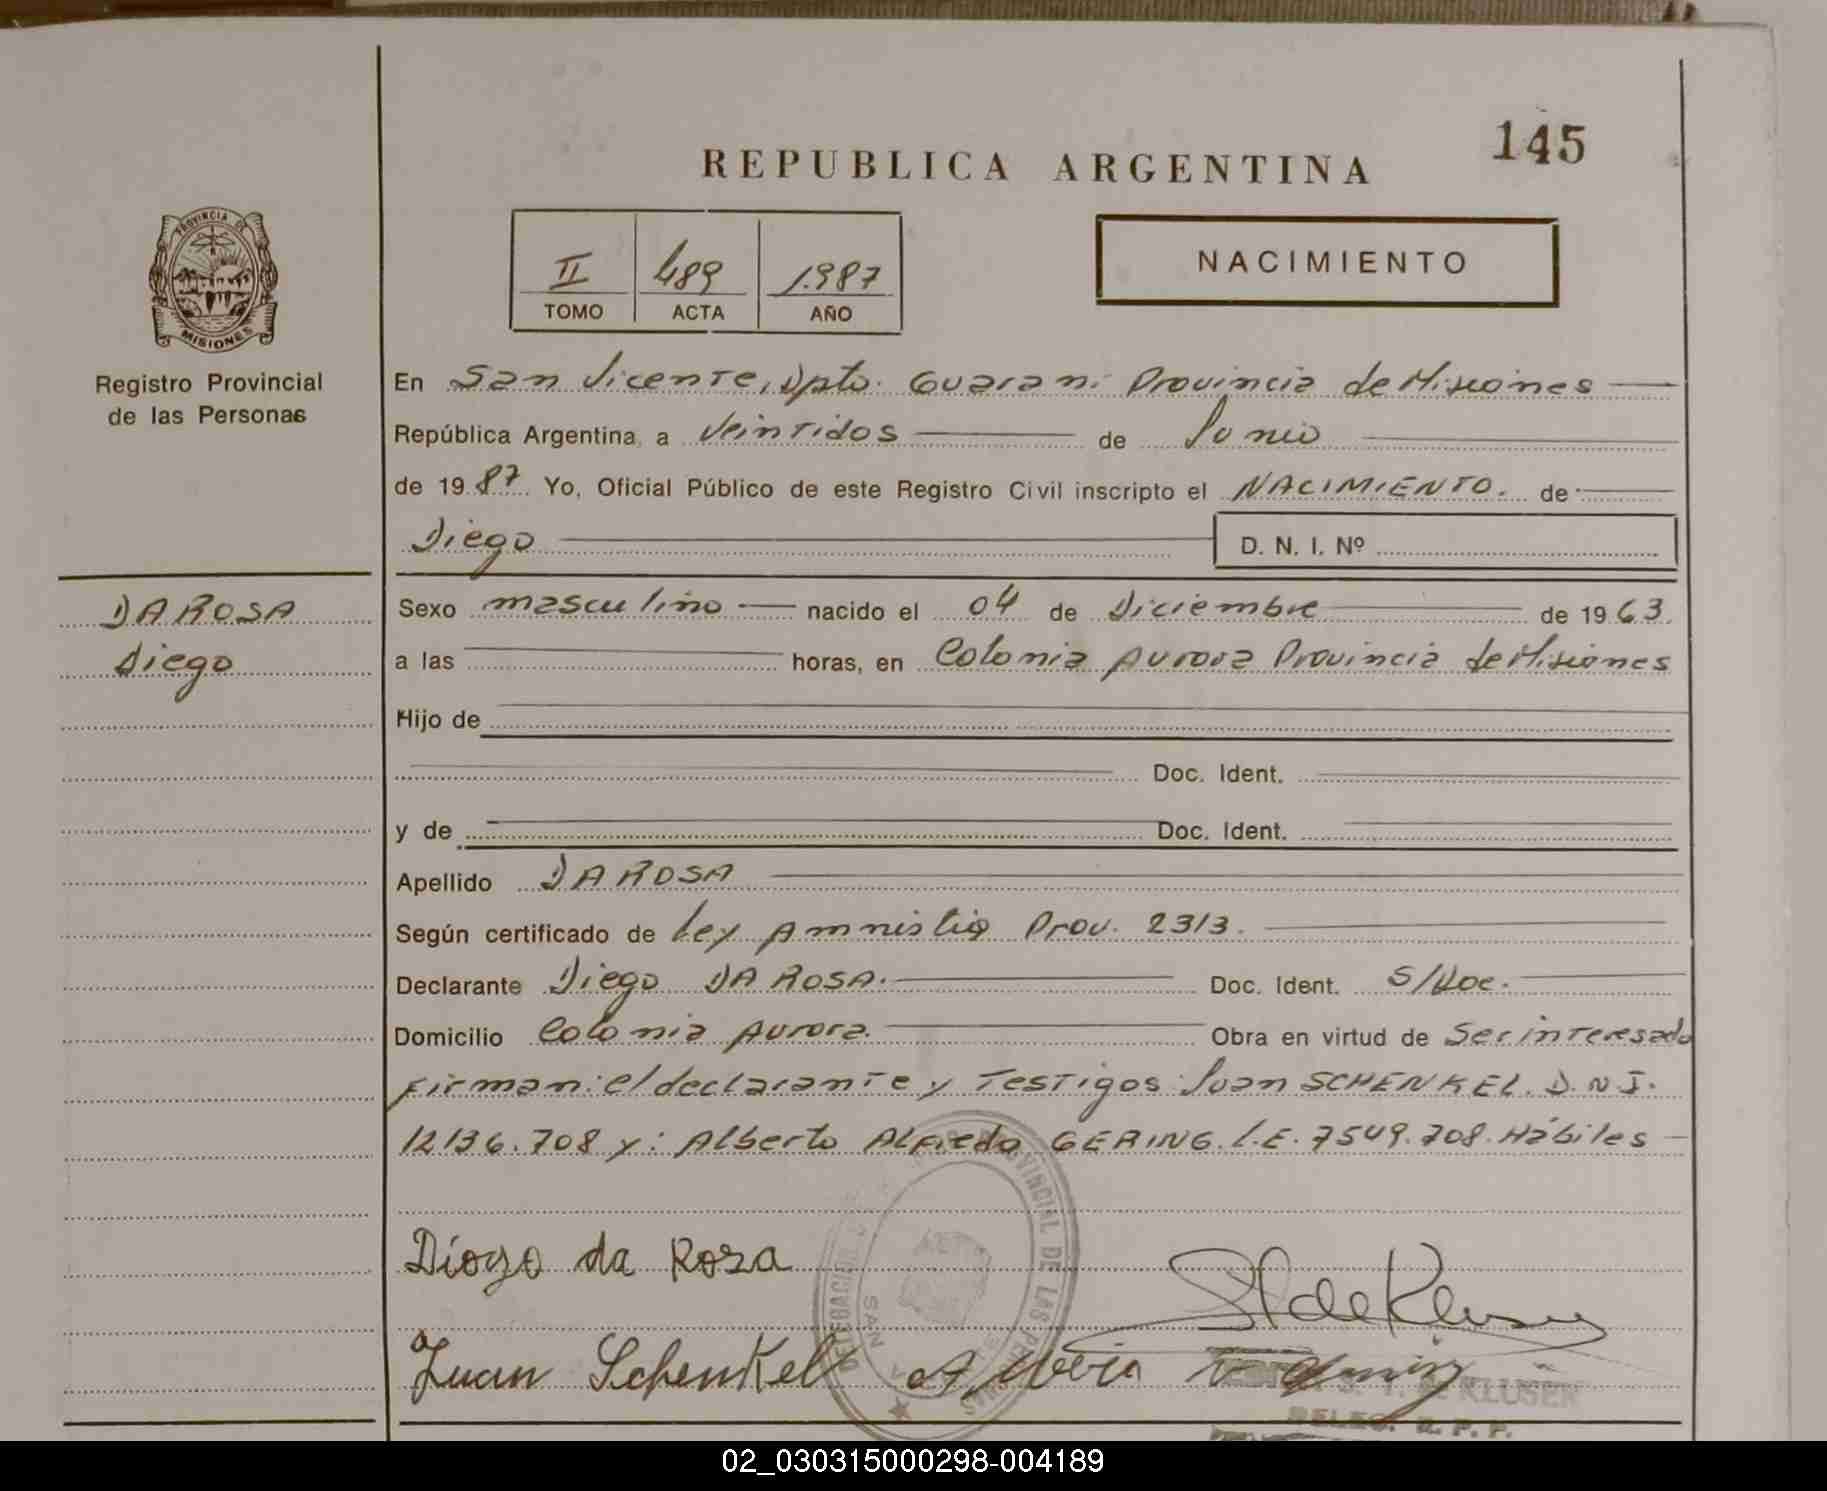 145
REPUBLICA ARGENTINA
PROVINCIA DE
MISIONES
II 489 1.987
TOMO ACTA AÑO
NACIMIENTO
Registro Provincial
de las Personas
En San Vicente, Dpto. Guarani Provincia de Misiones
República Argentina, a Veintidos de Junio
de 19 87 Yo, Oficial Público de este Registro Civil inscripto el NACIMIENTO. de
Diego D. N. I. Nº
DA ROSA
Diego
Sexo masculino nacido el 04 de Diciembre de 19 63.
a las horas, en Colonia Aurora Provincia de Misiones
Hijo de
Doc. Ident.
y de Doc. Ident.
Apellido DA ROSA
Según certificado de Ley Amnistia Prov. 2313.
Declarante Diego DA ROSA. Doc. Ident. S/Doc.
Domicilio Colonia Aurora. Obra en virtud de Ser interesado
Firman: el declarante y Testigos: Juan SCHENKEL. D.N.I.
12.136.708 y: Alberto Alfredo GERING. L.E. 7.549.708. Hábiles
Diogo da Rosa
Juan Schenkel
DELEGACION
PROVINCIAL DE LAS
SAN
KLUSER
DELEG. R. P. P.
02_030315000298-004189